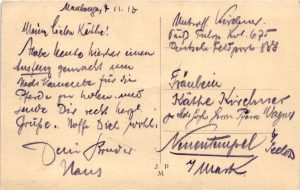 Maubeuge, 7.11.15
Meine liebe Käthe!
Habe heute hierher einen
Ausflug gemacht um
Medikamente für die
Pferde zu holen und
sende Dir recht herzl.
Grüße. Hoffe Dich wohl.
Dein Bruder
Hans
J P
M
Unteroff. Kirchner
Kol. 675
Deutsche Feldpost 888
Fräulein
Käthe Kirchner
Herrn Pfarrer Vagner
Neuentempel
b/ Seelow
i/ Mark